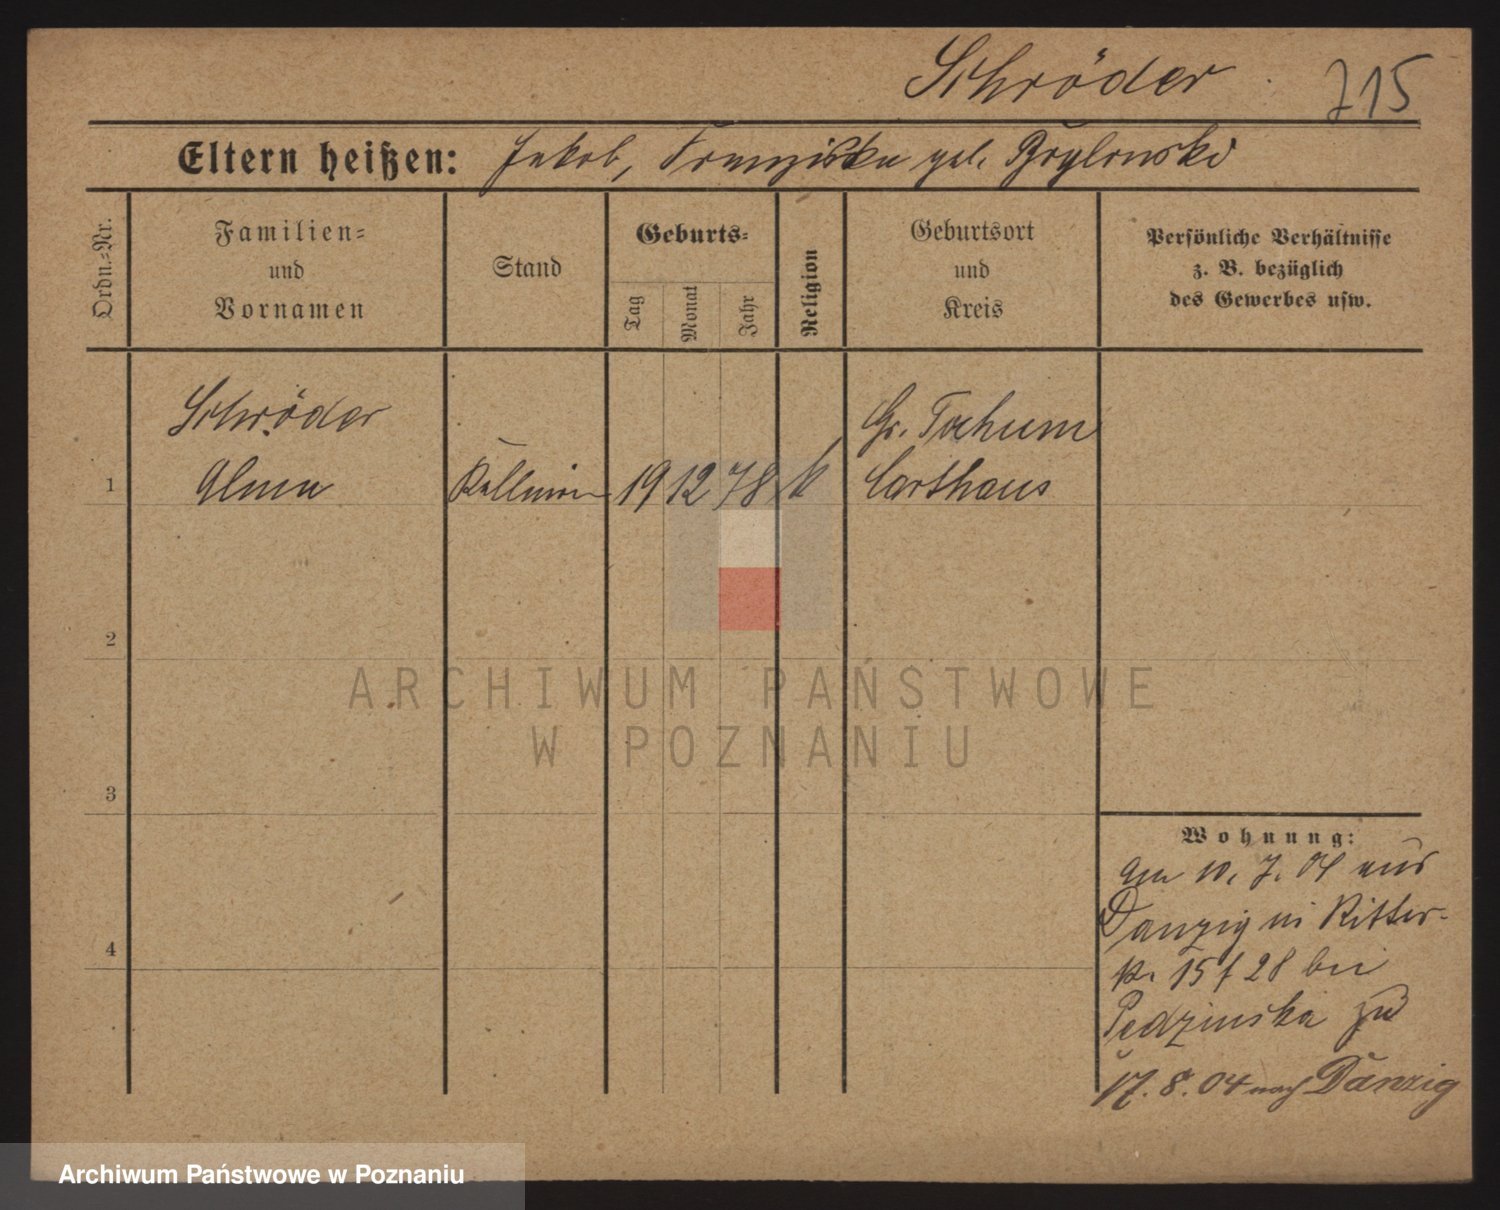 Schröder
715
Eltern heißen: Jakob, Franziska geb.
Ordn.-Nr.
Familien-
und
Vornamen
Stand
Geburts-
Tag
Monat
Jahr
Religion
Geburtsort
und
Kreis
Persönliche Verhältnisse
z. B. bezüglich
des Gewerbes usw.
Schröder
Gr.
1
Alma
Kellnerin
19
12
78
k
Carthaus
2
ARCHIWUM PAŃSTWOWE
W POZNANIU
3
Wohnung:
am 10. 7. 04 aus
Danzig in Ritter-
15 / 28 bei
4
zu
17. 8. 04 nach Danzig
Archiwum Państwowe w Poznaniu